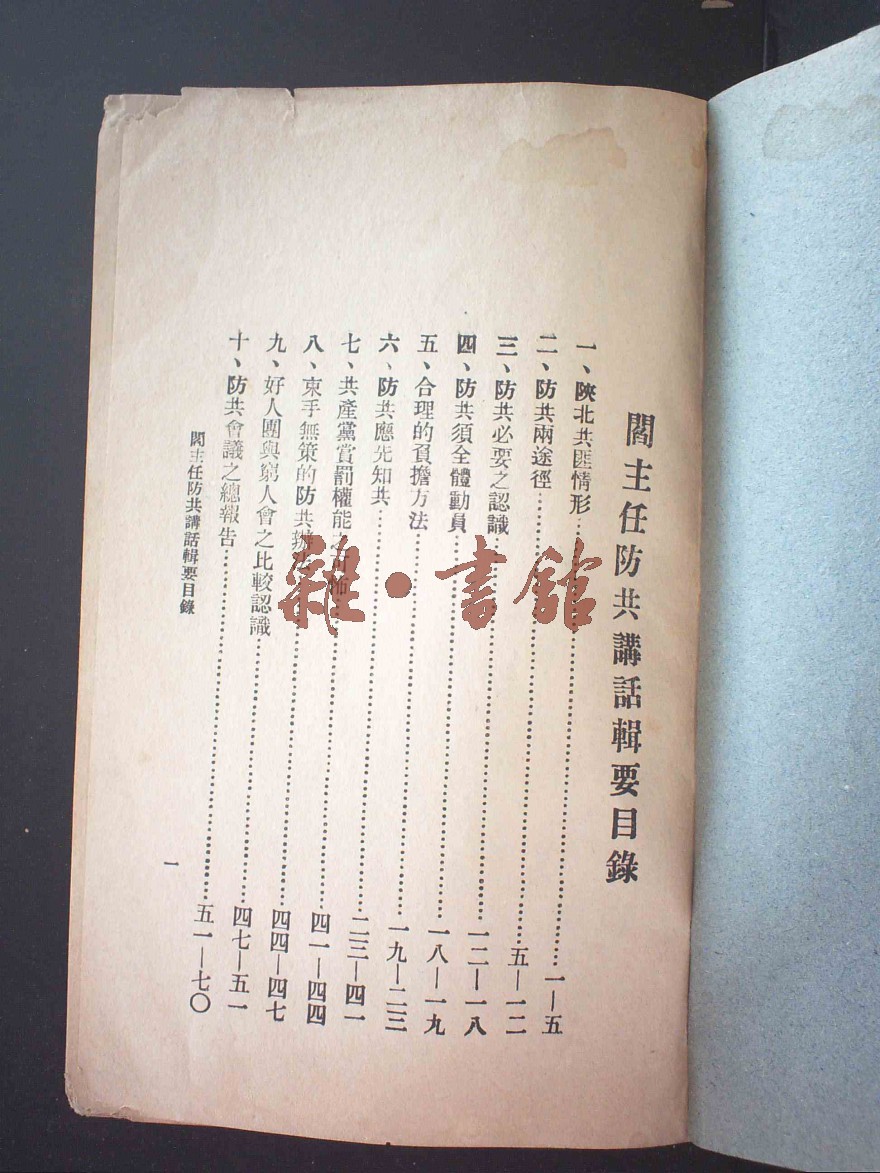 閻主任防共講話輯要目錄
一、陝北共匪情形……一—五
二、防共兩途徑……五—一二
三、防共必要之認識……一二—一八
四、防共須全體動員……一八—一九
五、合理的負擔方法……一九—二三
六、防共應先知共……二三—四一
七、共產黨賞罰權能之可怖……四一—四四
八、束手無策的防共辦法……四四—四七
九、好人團與窮人會之比較認識……四七—五一
十、防共會議之總報告……五一—七〇
閻主任防共講話輯要目錄
一
雜·書館